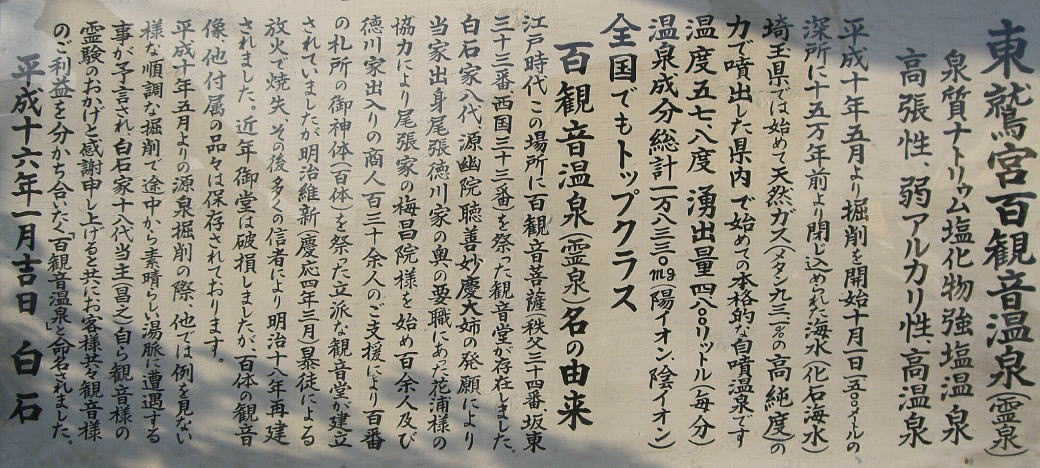 東鷲宮百観音温泉(霊泉)
泉質ナトリウム塩化物強塩温泉
高張性、弱アルカリ性、高温泉
平成十年五月より掘削を開始十月一日一五〇〇メートルの
深所に十五万年前より閉じ込めれた海水(化石海水)
埼玉県では始めて天然ガス(メタン九三%の高純度)の
力で噴出した県内で始めての本格的な自噴温泉です
温度五七、八度 湧出量四八〇〇リットル(毎分)
温泉成分総計一万八三三〇mg(陽イオン、陰イオン)
全国でもトップクラス
百観音温泉(霊泉)名の由来
江戸時代この場所に百観音菩薩(秩父三十四番、坂東
三十三番西国三十三番)を祭った観音堂が存在しました。
白石家八代源幽院聴善妙慶大姉の発願により
当家出身尾張徳川家の奥の要職にあった花浦様の
協力により尾張家の梅昌院様を始め百余人及び
徳川家出入りの商人百三十余人のご支援により百番
の札所の御神体(百体)を祭った立派な観音堂が建立
されていましたが明治維新(慶応四年三月)暴徒による
放火で焼失、その後多くの信者により明治十八年再建
されました。近年御堂は破損しましたが、百体の観音
像他付属の品々は保存されております。
平成十年五月よりの源泉掘削の際、他では例を見ない
様な順調な掘削で途中から素晴らしい湯脈に遭遇する
事が予言され、白石家十八代当主(昌之)自ら観音様の
霊験のおかげと感謝申し上げると共にお客様共々観音様
のご利益を分かち合いたく「百観音温泉」と命名されました。
平成十六年一月吉日 白石